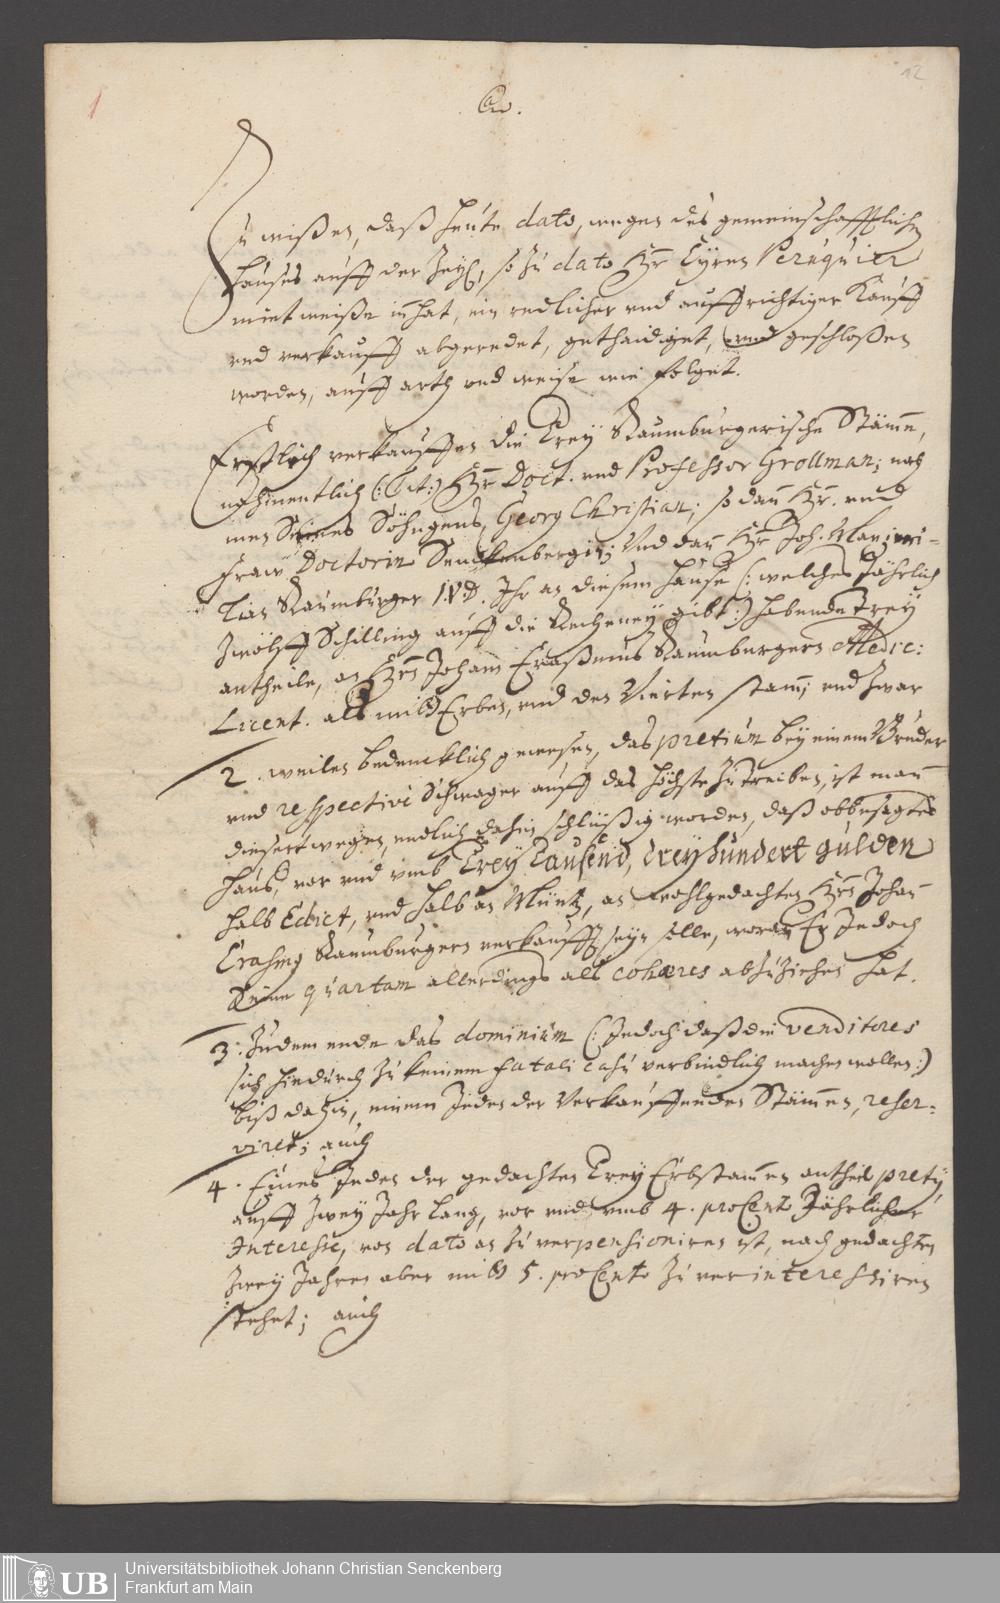 1
12
Zu wißen, daß heute dato, wegen des gemeinschafftlichen
Haußes auff der Zeyl, so zu dato Hr. Eyren Peruquier
mietweiße inhat, ein redlicher und auffrichtiger Kauff
und verkauff abgeredet, gethaidiget, und geschloßen
worden, auff arth und weise wie folget.
Erstlich verkauffen die Drey Raumburgerische Stämme,
nahmentlich (: Tit:) Hr. Doct. und Professor Grollman; nah
men Seines Söhngens, Georg Christian; so dan Hr. und
Fraw Doctorin Senckenbergin; Und dan Hr. Joh. Maximi-
lian Raumburger I.V.D. Ihr an diesem Hause (: welches Jährlich
Zwölff Schilling auff die Recheney gibt:) habende Drey
antheile, an Hrn Johann Eraßmus Raumburgern Medic:
Licent. als mitt Erben, und den Vierten stamm; und zwar
2. weilen bedencklich gewesen, das pretium bey einem Bruder
und respective Schwager auff das höchste zu treiben, ist man
dießertwegen, endlich dahin schlüßig worden, daß obbesagtes
Hauß, vor und umb Drey Tausend, dreyhundert gulden
halb Edict, und halb an Müntz, an wohlgedachten Hrn Johann
Erasmq Raumburgern verkaufft seyn solle, woran Er Jedoch
Seine quartam allerdings als cohæres abzuziehen hat.
3. Zu dem ende das dominium (: Jedoch daß die venditores
sich hiedurch zu keinem fatali casu verbindlich machen wollen:)
biß dahin, einem Jeden der Verkauffenden Stämmen, reser-
viret; auch
4. Eines Jeden der gedachten Drey Erbstammen antheil pretij
auff Zwey Jahr lang, vor und umb 4. proCento Jährlicher
Interesse, von dato an zu verpensioniren ist, nach gedachten
Zwey Jahren aber mitt 5. proCento zu verinteressiren
stehet; auch
UB
Universitätsbibliothek Johann Christian Senckenberg
Frankfurt am Main